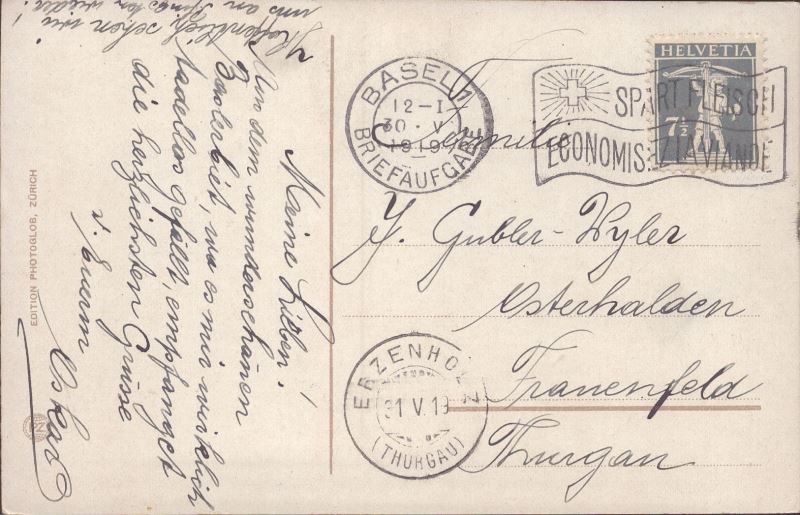 Meine Lieben!
Aus dem wunderschönen
Baselbiet, wo es mir wirklich
tadellos gefällt, empfanget
die herzlichsten Grüsse
v. Euerm
Oskar
Hoffentlich sehen wir
uns an Pfingsten wieder!
EDITION PHOTOGLOB, ZÜRICH
PZ
BASEL 1
12-I
30.V
1919
BRIEFAUFGABE
HELVETIA
7½
SPART FLEISCH
ECONOMISEZ LA VIANDE
Familie
J. Gubler-Wyler
Osterhalden
Frauenfeld
Thurgau
ERZENHOLZ
31 V.19
(THURGAU)